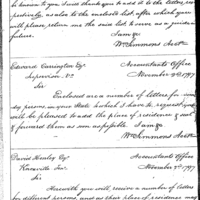 be known to you I will thank you to add it to the letters, res-
pectively, as also to the enclosed list after which you
will please return me the said list to serve as a guide in
future.
I am &c
Wm Simmons Acct
Edward Carrington Esqr
Accountants Office
Supervisor, Va
November 2d 1797
Sir
Enclosed are a number of letters for
persons, in your State which I have to request
will be pleased to add the place of residence of each
& forward them as soon as possible I am &c
Wm Simmons Acct
David Henley Esqr
Accountants Office
Knoxville
November 3d 1797
Sir
Herewith you will receive a number of letters
for different persons, and as their place of residence may